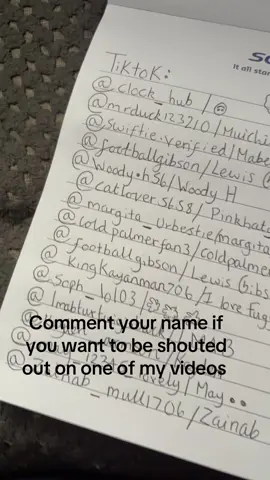 It all star
Tiktok:
@clock_hub /
@mrduck123210/Muichi
@swiftie.verified/Mabe
@footballgibson/Lewis
@Woody.h56/Woody H
@catlover.5658/Pinkbats
@margita_urbestie/margita
@coldpalmerfan3/coldpalmer
@footballgibson/Lewis Gibs
@KingKayanman706/I love Fug
@Soph_lol03/
@Imabtu
Comment your name if
you want to be shouted
out on one of my videos
lovely/May
mull1706/Zainab